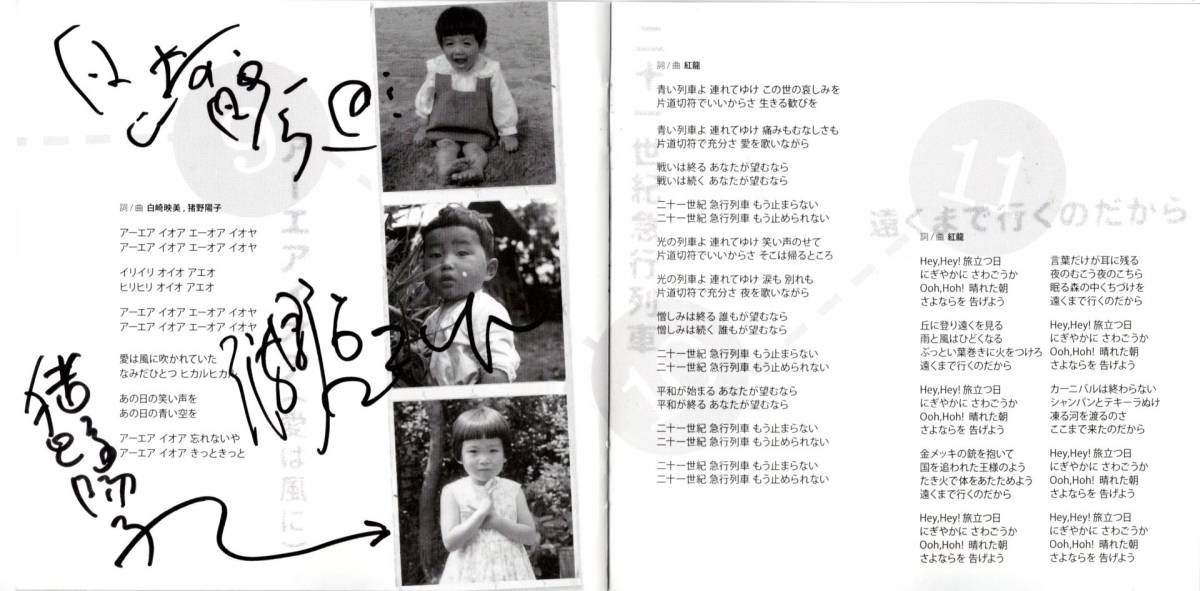 9
アーエアイオア
(愛は風に)
詞 / 曲 白崎映美 , 猪野陽子
アーエア イオア エーオア イオヤ
アーエア イオア エーオア イオヤ
イリイリ オイオ アエオ
ヒリヒリ オイオ アエオ
アーエア イオア エーオア イオヤ
アーエア イオア エーオア イオヤ
愛は風に吹かれていた
なみだひとつ ヒカルヒカル
あの日の笑い声を
あの日の青い空を
アーエア イオア 忘れないや
アーエア イオア きっときっと
猪野陽子
二十一世紀急行列車
詞 / 曲 紅龍
青い列車よ 連れてゆけ この世の哀しみを
片道切符でいいからさ 生きる歓びを
青い列車よ 連れてゆけ 痛みもむなしさも
片道切符で充分さ 愛を歌いながら
戦いは終る あなたが望むなら
戦いは続く あなたが望むなら
二十一世紀 急行列車 もう止まらない
二十一世紀 急行列車 もう止められない
光の列車よ 連れてゆけ 笑い声のせて
片道切符でいいからさ そこは帰るところ
光の列車よ 連れてゆけ 涙も 別れも
片道切符で充分さ 夜を歌いながら
憎しみは終る 誰もが望むなら
憎しみは続く 誰もが望むなら
二十一世紀 急行列車 もう止まらない
二十一世紀 急行列車 もう止められない
平和が始まる あなたが望むなら
平和が終る あなたが望むなら
二十一世紀 急行列車 もう止まらない
二十一世紀 急行列車 もう止められない
二十一世紀 急行列車 もう止まらない
二十一世紀 急行列車 もう止められない
11
遠くまで行くのだから
詞 / 曲 紅龍
Hey,Hey! 旅立つ日
にぎやかに さわごうか
Ooh,Hoh! 晴れた朝
さよならを 告げよう
丘に登り遠くを見る
雨と風はひどくなる
ぶっとい葉巻きに火をつけろ
遠くまで行くのだから
Hey,Hey! 旅立つ日
にぎやかに さわごうか
Ooh,Hoh! 晴れた朝
さよならを 告げよう
金メッキの銃を抱いて
国を追われた王様のよう
たき火で体をあたためよう
遠くまで行くのだから
Hey,Hey! 旅立つ日
にぎやかに さわごうか
Ooh,Hoh! 晴れた朝
さよならを 告げよう
言葉だけが耳に残る
夜のむこう夜のこちら
眠る森の中くちづけを
遠くまで行くのだから
Hey,Hey! 旅立つ日
にぎやかに さわごうか
Ooh,Hoh! 晴れた朝
さよならを 告げよう
カーニバルは終わらない
シャンパンとテキーラうぬけ
凍る河を渡るのさ
ここまで来たのだから
Hey,Hey! 旅立つ日
にぎやかに さわごうか
Ooh,Hoh! 晴れた朝
さよならを 告げよう
Hey,Hey! 旅立つ日
にぎやかに さわごうか
Ooh,Hoh! 晴れた朝
さよならを 告げよう